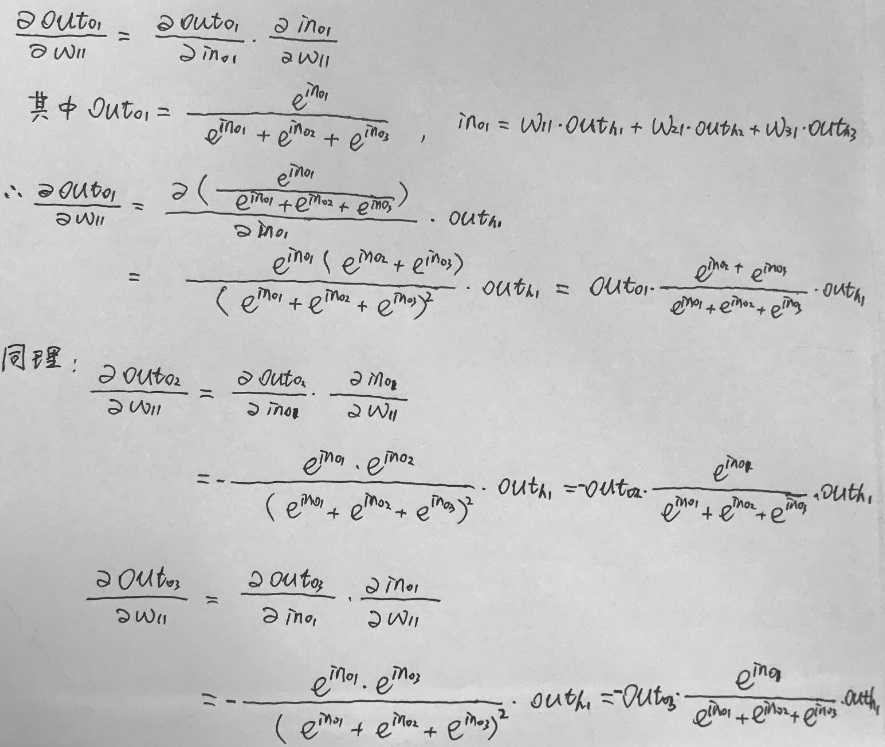 ∂outo1/∂w11 = ∂outo1/∂ino1 · ∂ino1/∂w11
其中 outo1 = e^ino1 / (e^ino1 + e^ino2 + e^ino3) , ino1 = w11·outh1 + w21·outh2 + w31·outh3
∴ ∂outo1/∂w11 = ∂(e^ino1 / (e^ino1 + e^ino2 + e^ino3)) / ∂ino1 · outh1
= e^ino1 (e^ino2 + e^ino3) / (e^ino1 + e^ino2 + e^ino3)^2 · outh1 = outo1 · (e^ino2 + e^ino3) / (e^ino1 + e^ino2 + e^ino3) · outh1
同理:
∂outo2/∂w11 = ∂outo2/∂ino1 · ∂ino1/∂w11
= - e^ino1 · e^ino2 / (e^ino1 + e^ino2 + e^ino3)^2 · outh1 = -outo2 · e^ino1 / (e^ino1 + e^ino2 + e^ino3) · outh1
∂outo3/∂w11 = ∂outo3/∂ino1 · ∂ino1/∂w11
= - e^ino1 · e^ino3 / (e^ino1 + e^ino2 + e^ino3)^2 · outh1 = -outo3 · e^ino1 / (e^ino1 + e^ino2 + e^ino3) · outh1